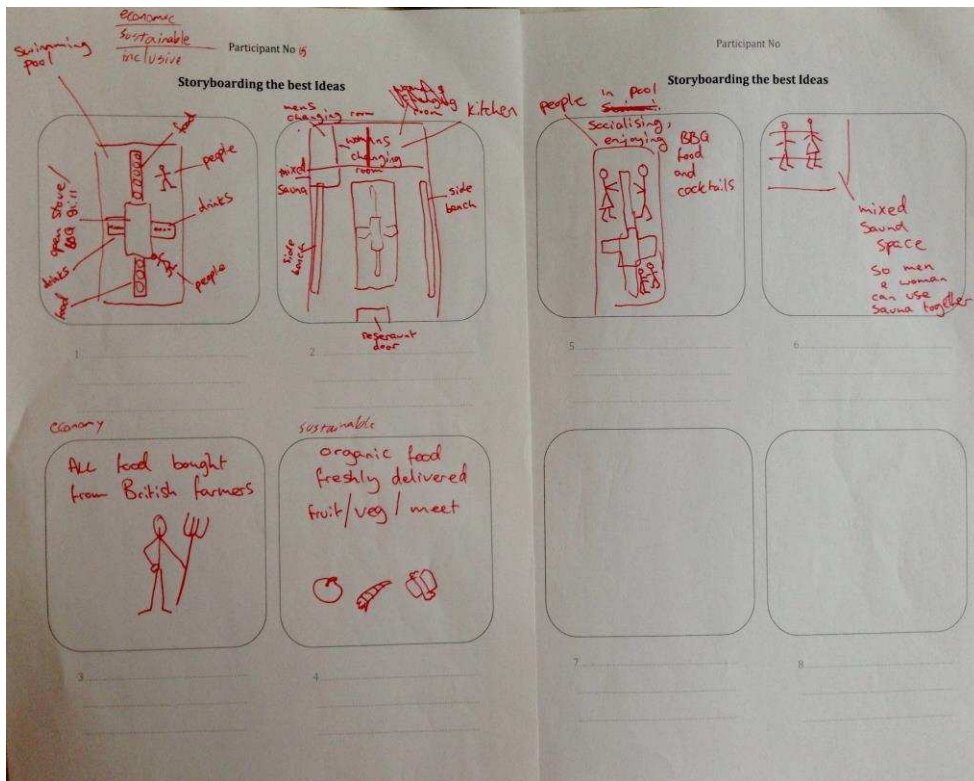 economic
sustainable
inclusive
Participant No 15
Storyboarding the best Ideas
swimming
pool
food
people
drinks
open stove/
BBQ grill
drinks
food
people
1
mens
changing room
room
Kitchen
womens
changing
room
mixed
sauna
side
bench
side
bench
door
2
economy
ALL food bought
from British farmers
3
sustainable
organic food
freshly delivered
fruit/veg/meet
4
Participant No
Storyboarding the best Ideas
people in pool
socialising,
enjoying
BBQ
food
and
cocktails
5
mixed
saund
space
so men
& woman
can use
sauna together
6
7
8